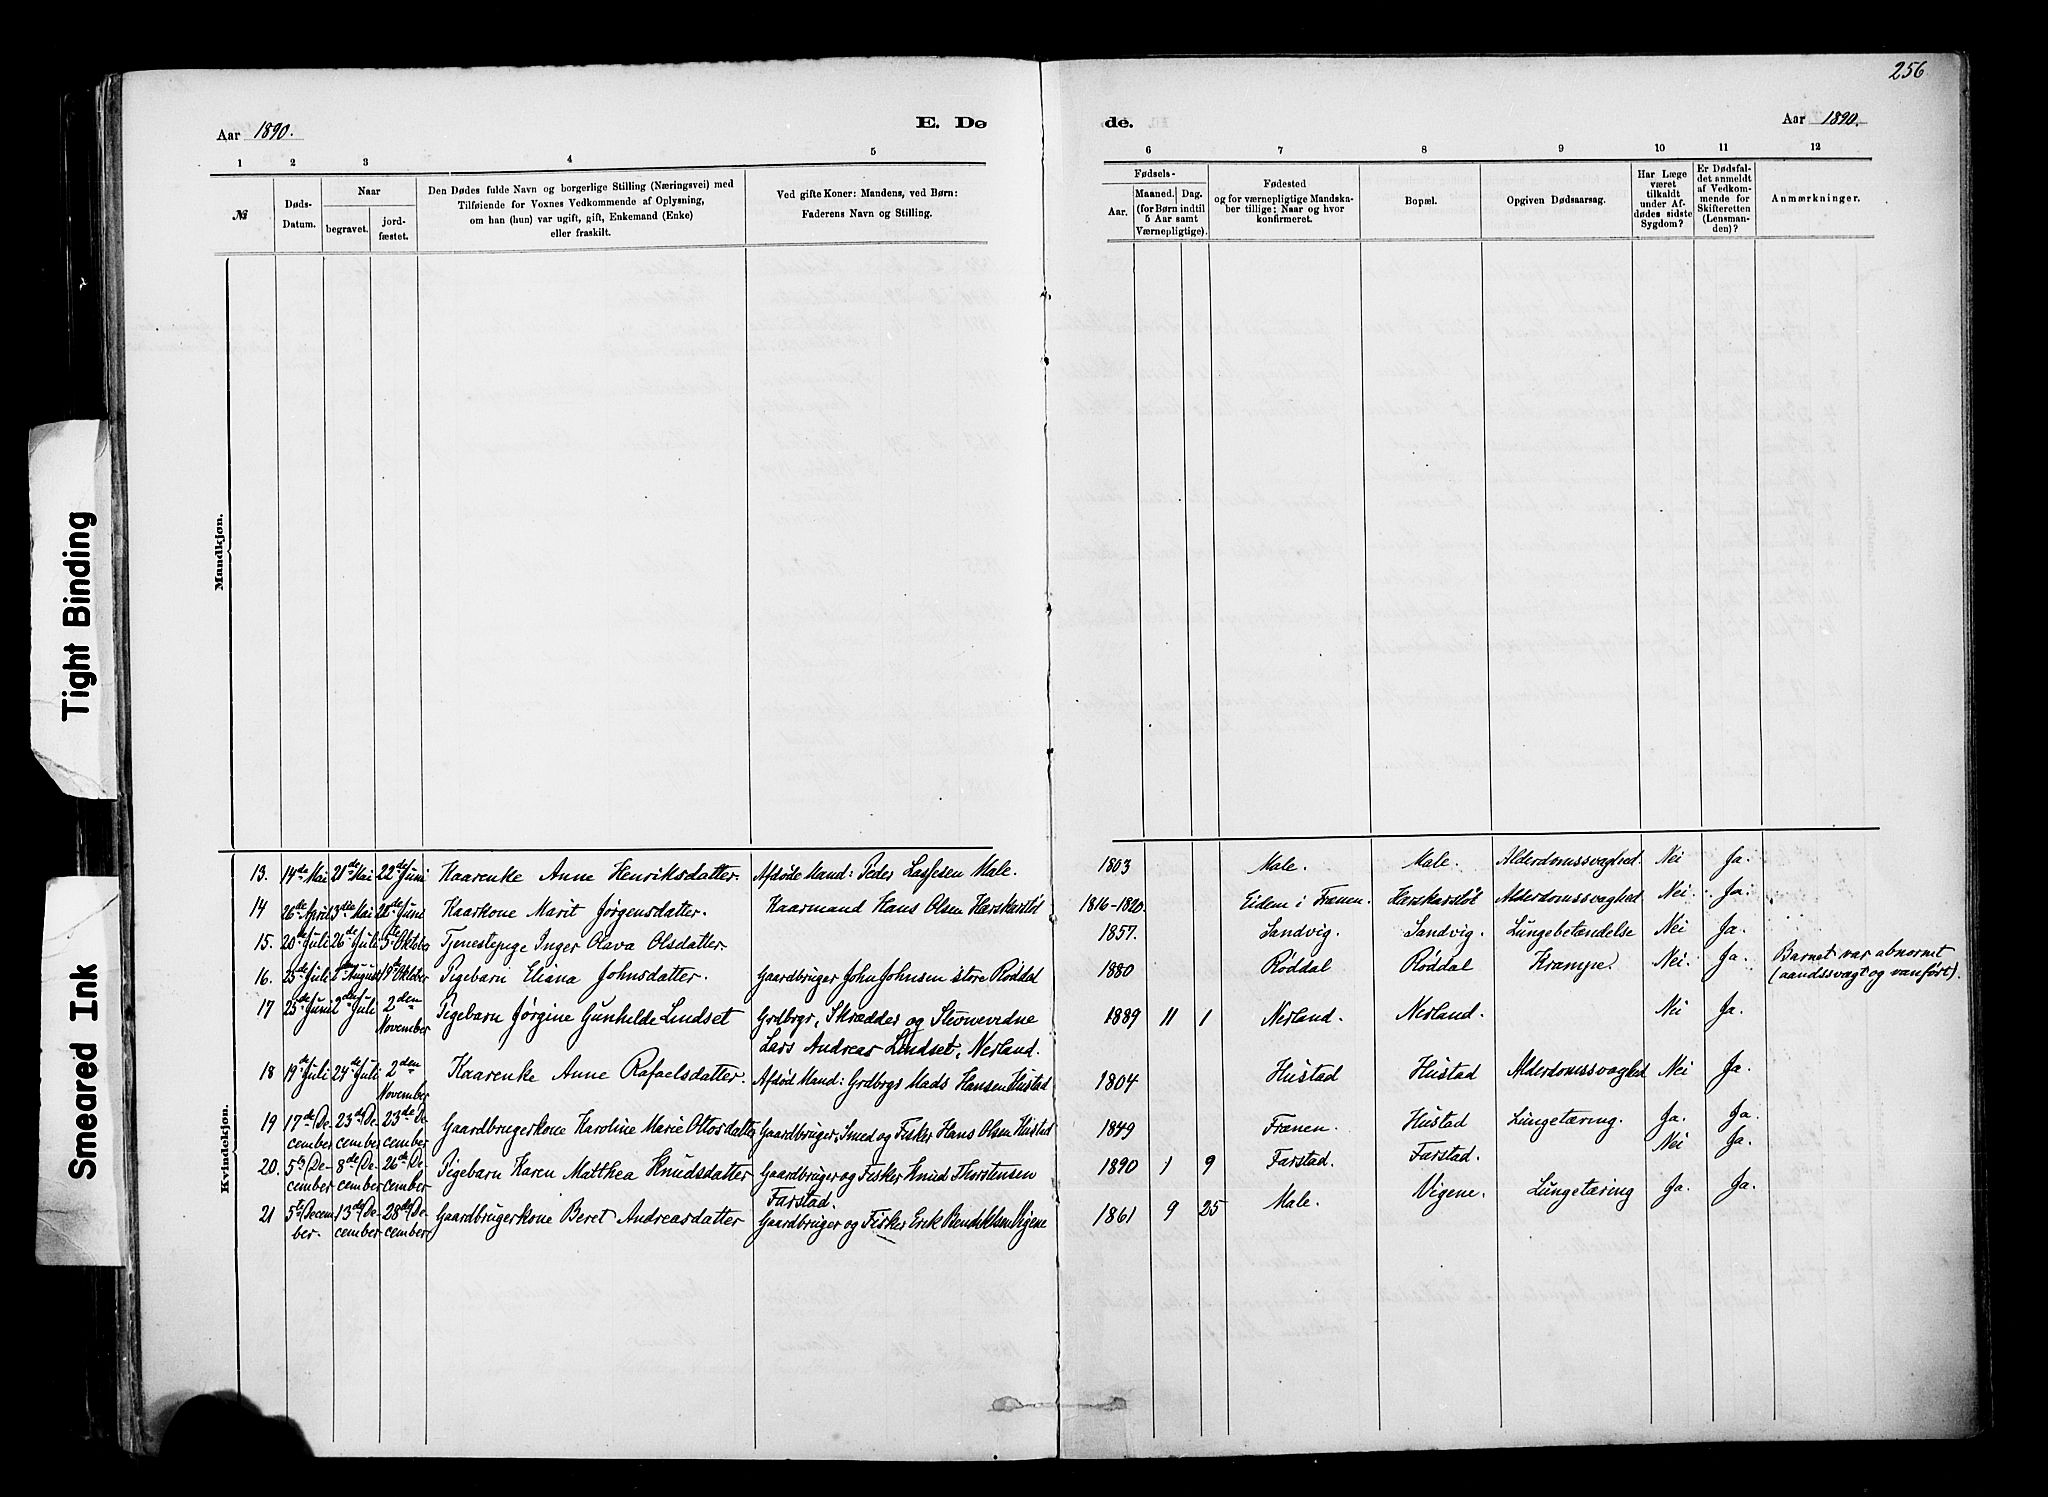 256
Aar 1890.
E. Dø
de.
Aar 1890.
1 2 3 4 5
6 7 8 9 10 11 12
№
Døds-
Datum.
Naar
begravet.
jord-
fæstet.
Den Dødes fulde Navn og borgerlige Stilling (Næringsvei) med
Tilføiende for Voxnes Vedkommende af Oplysning,
om han (hun) var ugift, gift, Enkemand (Enke)
eller fraskilt.
Ved gifte Koner: Mandens, ved Børn:
Faderens Navn og Stilling.
Fødsels-
Aar.
Maaned. Dag.
(for Børn indtil
5 Aar samt
Værnepligtige).
Fødested
og for værnepligtige Mandska-
ber tillige: Naar og hvor
konfirmeret.
Bopæl.
Opgiven Dødsaarsag.
Har Læge
været
tilkaldt
under Af-
dødes sidste
Sygdom?
Er Dødsfal-
det anmeldt
af Vedkom-
mende for
Skifteretten
(Lensman-
den)?
Anmærkninger.
Mandkjøn.
Kvindekjøn.
13. 14de Mai 21de Mai 22de Juni Kaarenke Anne Henriksdatter. Afdøde Mand: Peder Lassesen Male. 1803 Male. Male. Alderdomssvaghed. Nei Ja.
14 26de April 3die Mai 22de Juni Kaarkone Marit Jørgensdatter. Kaarmand Hans Olsen Harskarstøl 1816-1820. Eidem i Frænen. Harskarstøl Alderdomssvaghed Nei. Ja.
15. 20de Juli 26de Juli 5te Oktbr Tjenestepige Inger Olava Olsdatter. 1857. Sandvig. Sandvig. Lungebetændelse Nei Ja.
16. 25de Juli August Oktober Pigebarn Eliana Johnsdatter. Gaardbruger John Johnsen store Røddal 1880 Røddal Røddal Krampe. Nei. Ja. Barnet var abnormt
(aandssvagt og vanført).
17 25de Juni 2den Juli 2den
November Pigebarn Jørgine Gunhilde Lindset Grdbrgr, Skrædder og Stevnevidne
Lars Andreas Lindset, Nerland. 1889 11 1 Nerland. Nerland. Nei Ja.
18 19de Juli 24de Juli 2den
November Kaarenke Anne Rafaelsdatter. Afdød Mand: Grdbrgr Mads Hansen Hustad 1804 Hustad Hustad Alderdomssvaghed Nei Ja.
19 17de De-
cember 23de De-
cember 23de De-
cember Gaardbrugerkone Karoline Marie Ottosdatter Gaardbruger, Smed og Fisker Hans Olsen Hustad 1849 Frænen. Hustad Lungetæring. Ja. Ja.
20. 5te De-
cember 8de De-
cember 26de De-
cember Pigebarn Karen Matthea Knudsdatter Gaardbruger og Fisker Knud Thorstensen
Farstad. 1890 1 9 Farstad. Farstad. Nei Ja.
21 5te Decem-
ber. 13de De-
cember 28de De-
cember Gaardbrugerkone Beret Andreasdatter Gaardbruger og Fisker Erik Bendiksen Vigene 1861 9 25 Male. Vigene. Lungetæring Ja. Ja.
Tight Binding
Smeared Ink